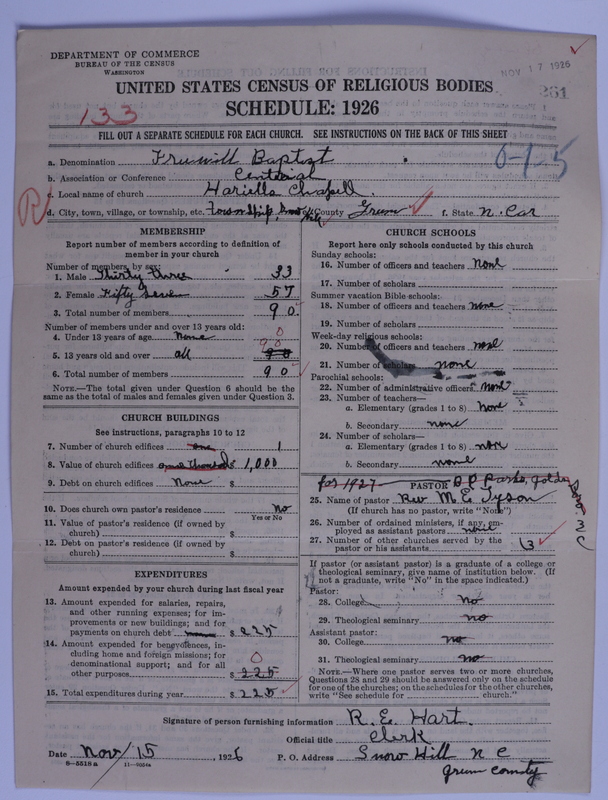 DEPARTMENT OF COMMERCE
BUREAU OF THE CENSUS
WASHINGTON
NOV 17 1926
261
UNITED STATES CENSUS OF RELIGIOUS BODIES
SCHEDULE: 1926
133
FILL OUT A SEPARATE SCHEDULE FOR EACH CHURCH. SEE INSTRUCTIONS ON THE BACK OF THIS SHEET
a. Denomination Freewill Baptist
6-1-5
b. Association or Conference Centeral
c. Local name of church Hariells Chapell
d. City, town, village, or township, etc. Township, Snow Hill County Green f. State N. Car
R
MEMBERSHIP
Report number of members according to definition of member in your church
Number of members, by sex:
1. Male Thirty Three 33
2. Female Fifty Seven 57
3. Total number of members 90
Number of members under and over 13 years old:
4. Under 13 years of age None 0
5. 13 years old and over all 90
6. Total number of members 90
NOTE.—The total given under Question 6 should be the same as the total of males and females given under Question 3.
CHURCH BUILDINGS
See instructions, paragraphs 10 to 12
7. Number of church edifices one 1
8. Value of church edifices one Thousand $ 1,000
9. Debt on church edifices None $
10. Does church own pastor's residence No
Yes or No
11. Value of pastor's residence (if owned by church) $
12. Debt on pastor's residence (if owned by church) $
EXPENDITURES
Amount expended by your church during last fiscal year
13. Amount expended for salaries, repairs, and other running expenses; for improvements or new buildings; and for payments on church debt $ 225
14. Amount expended for benevolences, including home and foreign missions; for denominational support; and for all other purposes $ 225 0
15. Total expenditures during year $ 225
CHURCH SCHOOLS
Report here only schools conducted by this church
Sunday schools:
16. Number of officers and teachers None
17. Number of scholars
Summer vacation Bible schools:
18. Number of officers and teachers none
19. Number of scholars
Week-day religious schools:
20. Number of officers and teachers none
21. Number of scholars none
Parochial schools:
22. Number of administrative officers none
23. Number of teachers—
a. Elementary (grades 1 to 8) None
b. Secondary none
24. Number of scholars—
a. Elementary (grades 1 to 8) none
b. Secondary none
for 1927
PASTOR
25. Name of pastor Rev M. E. Tyson
(If church has no pastor, write "None")
26. Number of ordained ministers, if any, employed as assistant pastors none
27. Number of other churches served by the pastor or his assistants 3
If pastor (or assistant pastor) is a graduate of a college or theological seminary, give name of institution below. (If not a graduate, write "No" in the space indicated.)
Pastor:
28. College no
29. Theological seminary no
Assistant pastor:
30. College no
31. Theological seminary no
NOTE.—Where one pastor serves two or more churches, Questions 28 and 29 should be answered only on the schedule for one of the churches; on the schedules for the other churches, write "See schedule for church."
Signature of person furnishing information R. E. Hart.
Official title Clerk
Date Nov 15, 1926 P. O. Address Snow Hill N C
Green County
8—5518 a 11—9054a